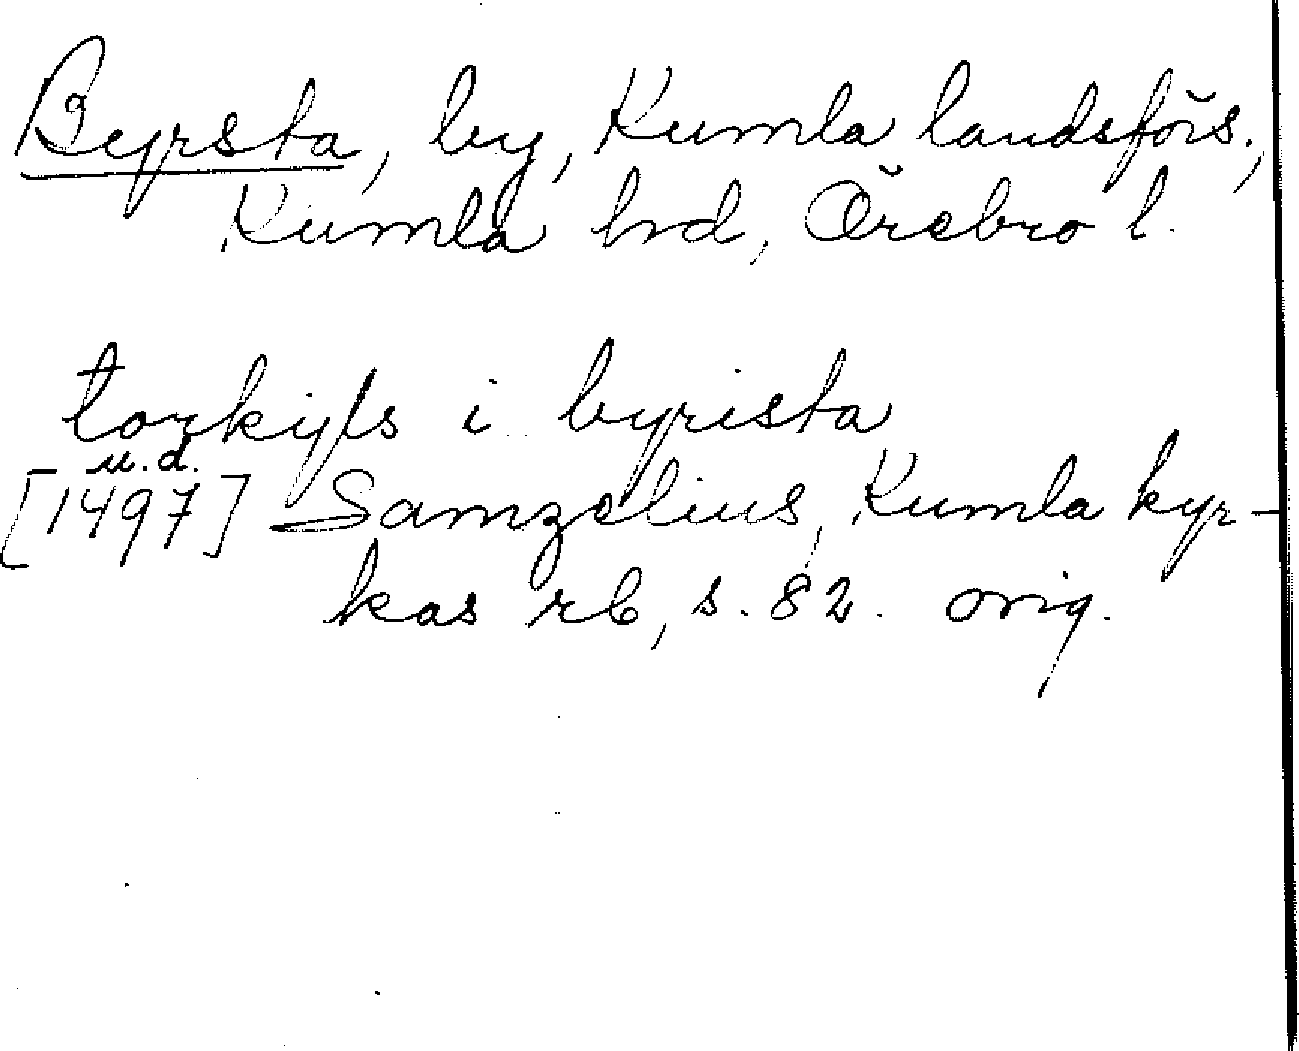 Byrsta, by, Kumla landsförs.,
Kumla hd, Örebro l.
torkijls i byrista
u.d.
[1497] Samzelius, Kumla kyr-
kas rb, s. 82. orig.